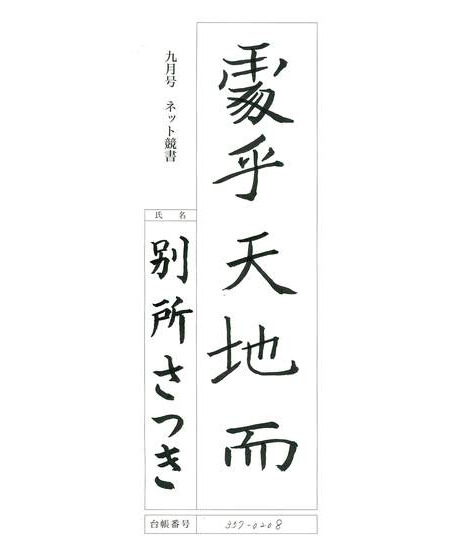 處乎天地而
九月号 ネット競書
氏名
別所さつき
台帳番号 357-0208